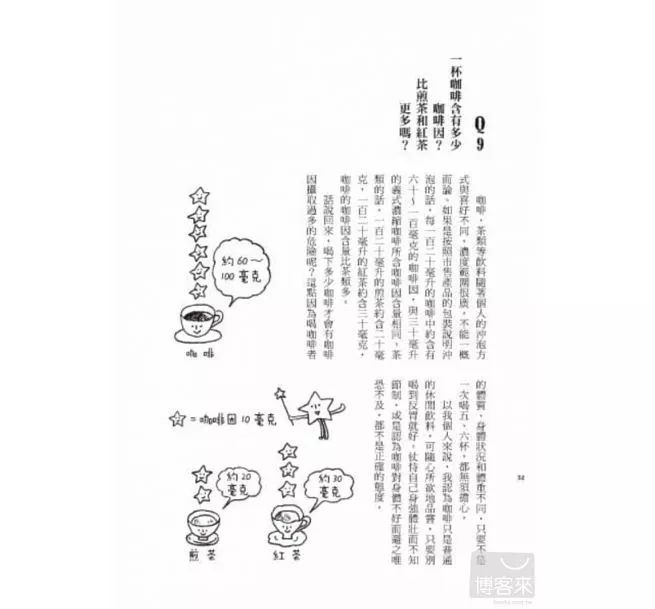 Q9
一杯咖啡含有多少
咖啡因？
比煎茶和紅茶
更多嗎？
咖啡，茶類等飲料隨著個人的沖泡方
式與喜好不同，濃度範圍很廣，不能一概
而論。如果是按照市售產品的包裝說明沖
泡的話，每一百二十毫升的咖啡中約含有
六十～一百毫克的咖啡因，與三十毫升
的義式濃縮咖啡所含咖啡因含量相同。茶
類的話，一百二十毫升的煎茶約含二十毫
克，一百二十毫升的紅茶約含三十毫克，
咖啡的咖啡因含量比茶類多。
話說回來，喝下多少咖啡才會有咖啡
因攝取過多的危險呢？這點因為喝咖啡者
約60～
100毫克
咖啡
的體質，身體狀況和體重不同，只要不是
一次喝五、六杯，都無須擔心。
以我個人來說，我認為咖啡只是普通
的休閒飲料，可隨心所欲地品嘗，只要別
喝到反胃就好。仗恃自己身強體壯而不知
節制，或是認為咖啡對身體不好而避之唯
恐不及，都不是正確的態度。
=咖啡因10毫克
約20
毫克
煎茶
約30
毫克
紅茶
32
博客來